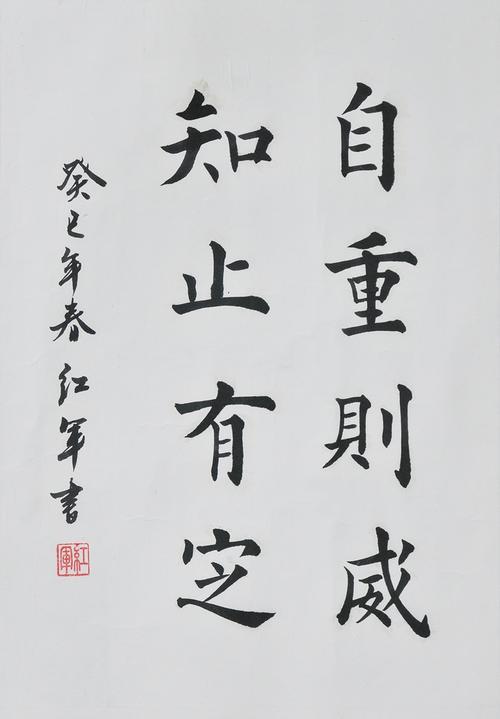 自重則威
知止有定
癸巳年春红军書
紅軍